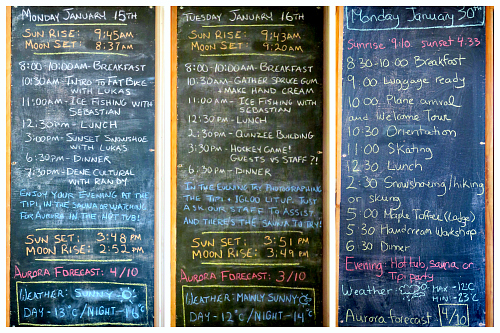 MONDAY JANUARY 15TH
SUN RISE: 9:45AM
MOON SET: 8:37AM
8:00-10:00AM-BREAKFAST
10:30AM-INTRO TO FAT BIKE
WITH LUKAS
11:00AM-ICE FISHING WITH
SEBASTIAN
12:30PM-LUNCH
3:00PM-SUNSET SNOWSHOE
WITH LUKAS
6:30PM-DINNER
7:30PM-DENE CULTURAL
WITH RANDY
ENJOY YOUR EVENING AT THE
TIPI, IN THE SAUNA OR WATCHING
FOR AURORA IN THE HOT TUB!
SUN SET: 3:48 PM
MOON RISE: 2:52 PM
AURORA FORECAST: 4/10
WEATHER: SUNNY
DAY -13°C/NIGHT -16°C
TUESDAY JANUARY 16TH
SUN RISE: 9:43AM
MOON SET: 9:20AM
8:00-10:00AM-BREAKFAST
10:30AM-GATHER SPRUCE GUM
+ MAKE HAND CREAM
11:00AM-ICE FISHING WITH
SEBASTIAN
12:30PM-LUNCH
2:30PM-QUINZEE BUILDING
3:30PM-HOCKEY GAME!
GUESTS VS STAFF?!
6:30PM-DINNER
IN THE EVENING TRY PHOTOGRAPHING
THE TIPI + IGLOO LIT UP. JUST
ASK OUR STAFF TO ASSIST
AND THERE'S THE SAUNA TO TRY!
SUN SET: 3:51 PM
MOON RISE: 3:49 PM
AURORA FORECAST: 3/10
WEATHER: MAINLY SUNNY
DAY -12°C/NIGHT -14°C
Monday January 30TH
Sunrise 9:10 sunset 4:33
8:30-10:00 Breakfast
9:00 Luggage ready
10:00 Plane arrival
and Welcome Tour
10:30 Orientation
11:00 Skating
12:30 Lunch
2:30 Snowshoeing/hiking
or skiing
5:00 Maple Toffee (Lodge)
5:30 Handcream Workshop
6:30 Dinner
Evening: Hot tub, Sauna or
Tipi party
Weather: MAX -12C
MIN -23°C
Aurora Forecast 4/10